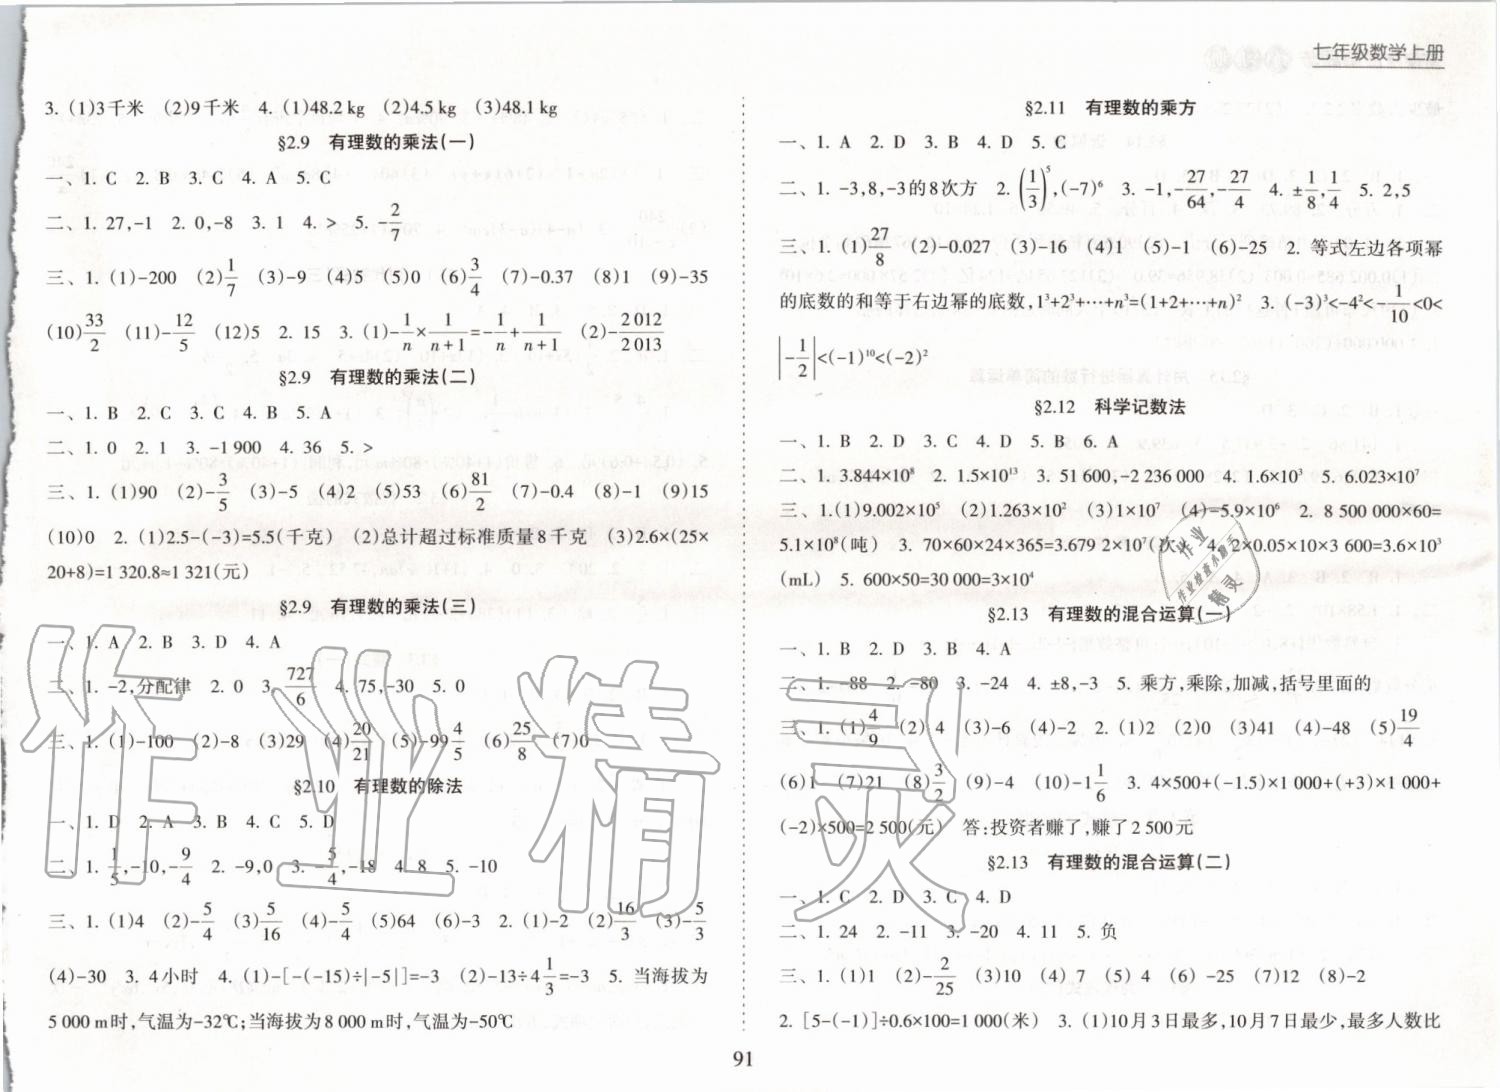 七年级数学上册
3. (1)3千米 (2)9千米 4. (1)48.2 kg (2)4.5 kg (3)48.1 kg
§2.9 有理数的乘法(一)
一、1. C 2. B 3. C 4. A 5. C
二、1. 27,-1 2. 0,-8 3. 1 4. > 5. -2/7
三、1. (1)-200 (2)1/7 (3)-9 (4)5 (5)0 (6)3/4 (7)-0.37 (8)1 (9)-35
(10)33/2 (11)-12/5 (12)5 2. 15 3. (1)-1/n×1/(n+1)=-1/n+1/(n+1) (2)-2 012/2 013
§2.9 有理数的乘法(二)
一、1. B 2. C 3. C 4. B 5. A
二、1. 0 2. 1 3. -1 900 4. 36 5. >
三、1. (1)90 (2)-3/5 (3)-5 (4)2 (5)53 (6)81/2 (7)-0.4 (8)-1 (9)15
(10)0 2. (1)2.5-(-3)=5.5(千克) (2)总计超过标准质量8千克 (3)2.6×(25×
20+8)=1 320.8≈1 321(元)
§2.9 有理数的乘法(三)
一、1. A 2. B 3. D 4. A
二、1. -2,分配律 2. 0 3. 727/6 4. 75,-30 5. 0
三、1. (1)-100 (2)-8 (3)29 (4)20/21 (5)-99 4/5 (6)25/8 (7)0
§2.10 有理数的除法
一、1. D 2. A 3. B 4. C 5. D
二、1. 1/5,-10,-9/4 2. -9,0 3. -5/4,-18 4. 8 5. -10
三、1. (1)4 (2)-5/4 (3)5/16 (4)-5/4 (5)64 (6)-3 2. (1)-2 (2)16/3 (3)-5/3
(4)-30 3. 4小时 4. (1)-[-(-15)÷|-5|]=-3 (2)-13÷4 1/3=-3 5. 当海拔为
5 000 m时,气温为-32℃;当海拔为8 000 m时,气温为-50℃
§2.11 有理数的乘方
一、1. A 2. D 3. B 4. D 5. C
二、1. -3,8,-3的8次方 2. (1/3)⁵,(-7)⁶ 3. -1,-27/64,-27/4 4. ±1/8,1/4 5. 2,5
三、1. (1)27/8 (2)-0.027 (3)-16 (4)1 (5)-1 (6)-25 2. 等式左边各项幂
的底数的和等于右边幂的底数,1³+2³+…+n³=(1+2+…+n)² 3. (-3)³<-4²<-1/10<0<
|-1/2|<(-1)¹⁰<(-2)²
§2.12 科学记数法
一、1. B 2. D 3. C 4. D 5. B 6. A
二、1. 3.844×10⁸ 2. 1.5×10¹³ 3. 51 600,-2 236 000 4. 1.6×10³ 5. 6.023×10⁷
三、1.(1)9.002×10⁵ (2)1.263×10² (3)1×10⁷ (4)-5.9×10⁶ 2. 8 500 000×60=
5.1×10⁸(吨) 3. 70×60×24×365=3.679 2×10⁷(次) 4. 2×0.05×10×3 600=3.6×10³
(mL) 5. 600×50=30 000=3×10⁴
§2.13 有理数的混合运算(一)
一、1. B 2. D 3. B 4. A
二、1. -88 2. -80 3. -24 4. ±8,-3 5. 乘方,乘除,加减,括号里面的
三、1. (1)4/9 (2) 4 (3)-6 (4)-2 2. (1)2 (2)0 (3)41 (4)-48 (5)19/4
(6)1 (7)21 (8)3/2 (9)-4 (10)-1 1/6 3. 4×500+(-1.5)×1 000+(+3)×1 000+
(-2)×500=2 500(元) 答:投资者赚了,赚了2 500元
§2.13 有理数的混合运算(二)
一、1. C 2. D 3. C 4. D
二、1. 24 2. -11 3. -20 4. 11 5. 负
三、1. (1)1 (2)-2/25 (3)10 (4) 7 (5) 4 (6) -25 (7)12 (8)-2
2. [5-(-1)]÷0.6×100=1 000(米) 3. (1)10月3日最多,10月7日最少,最多人数比
91
作业精灵